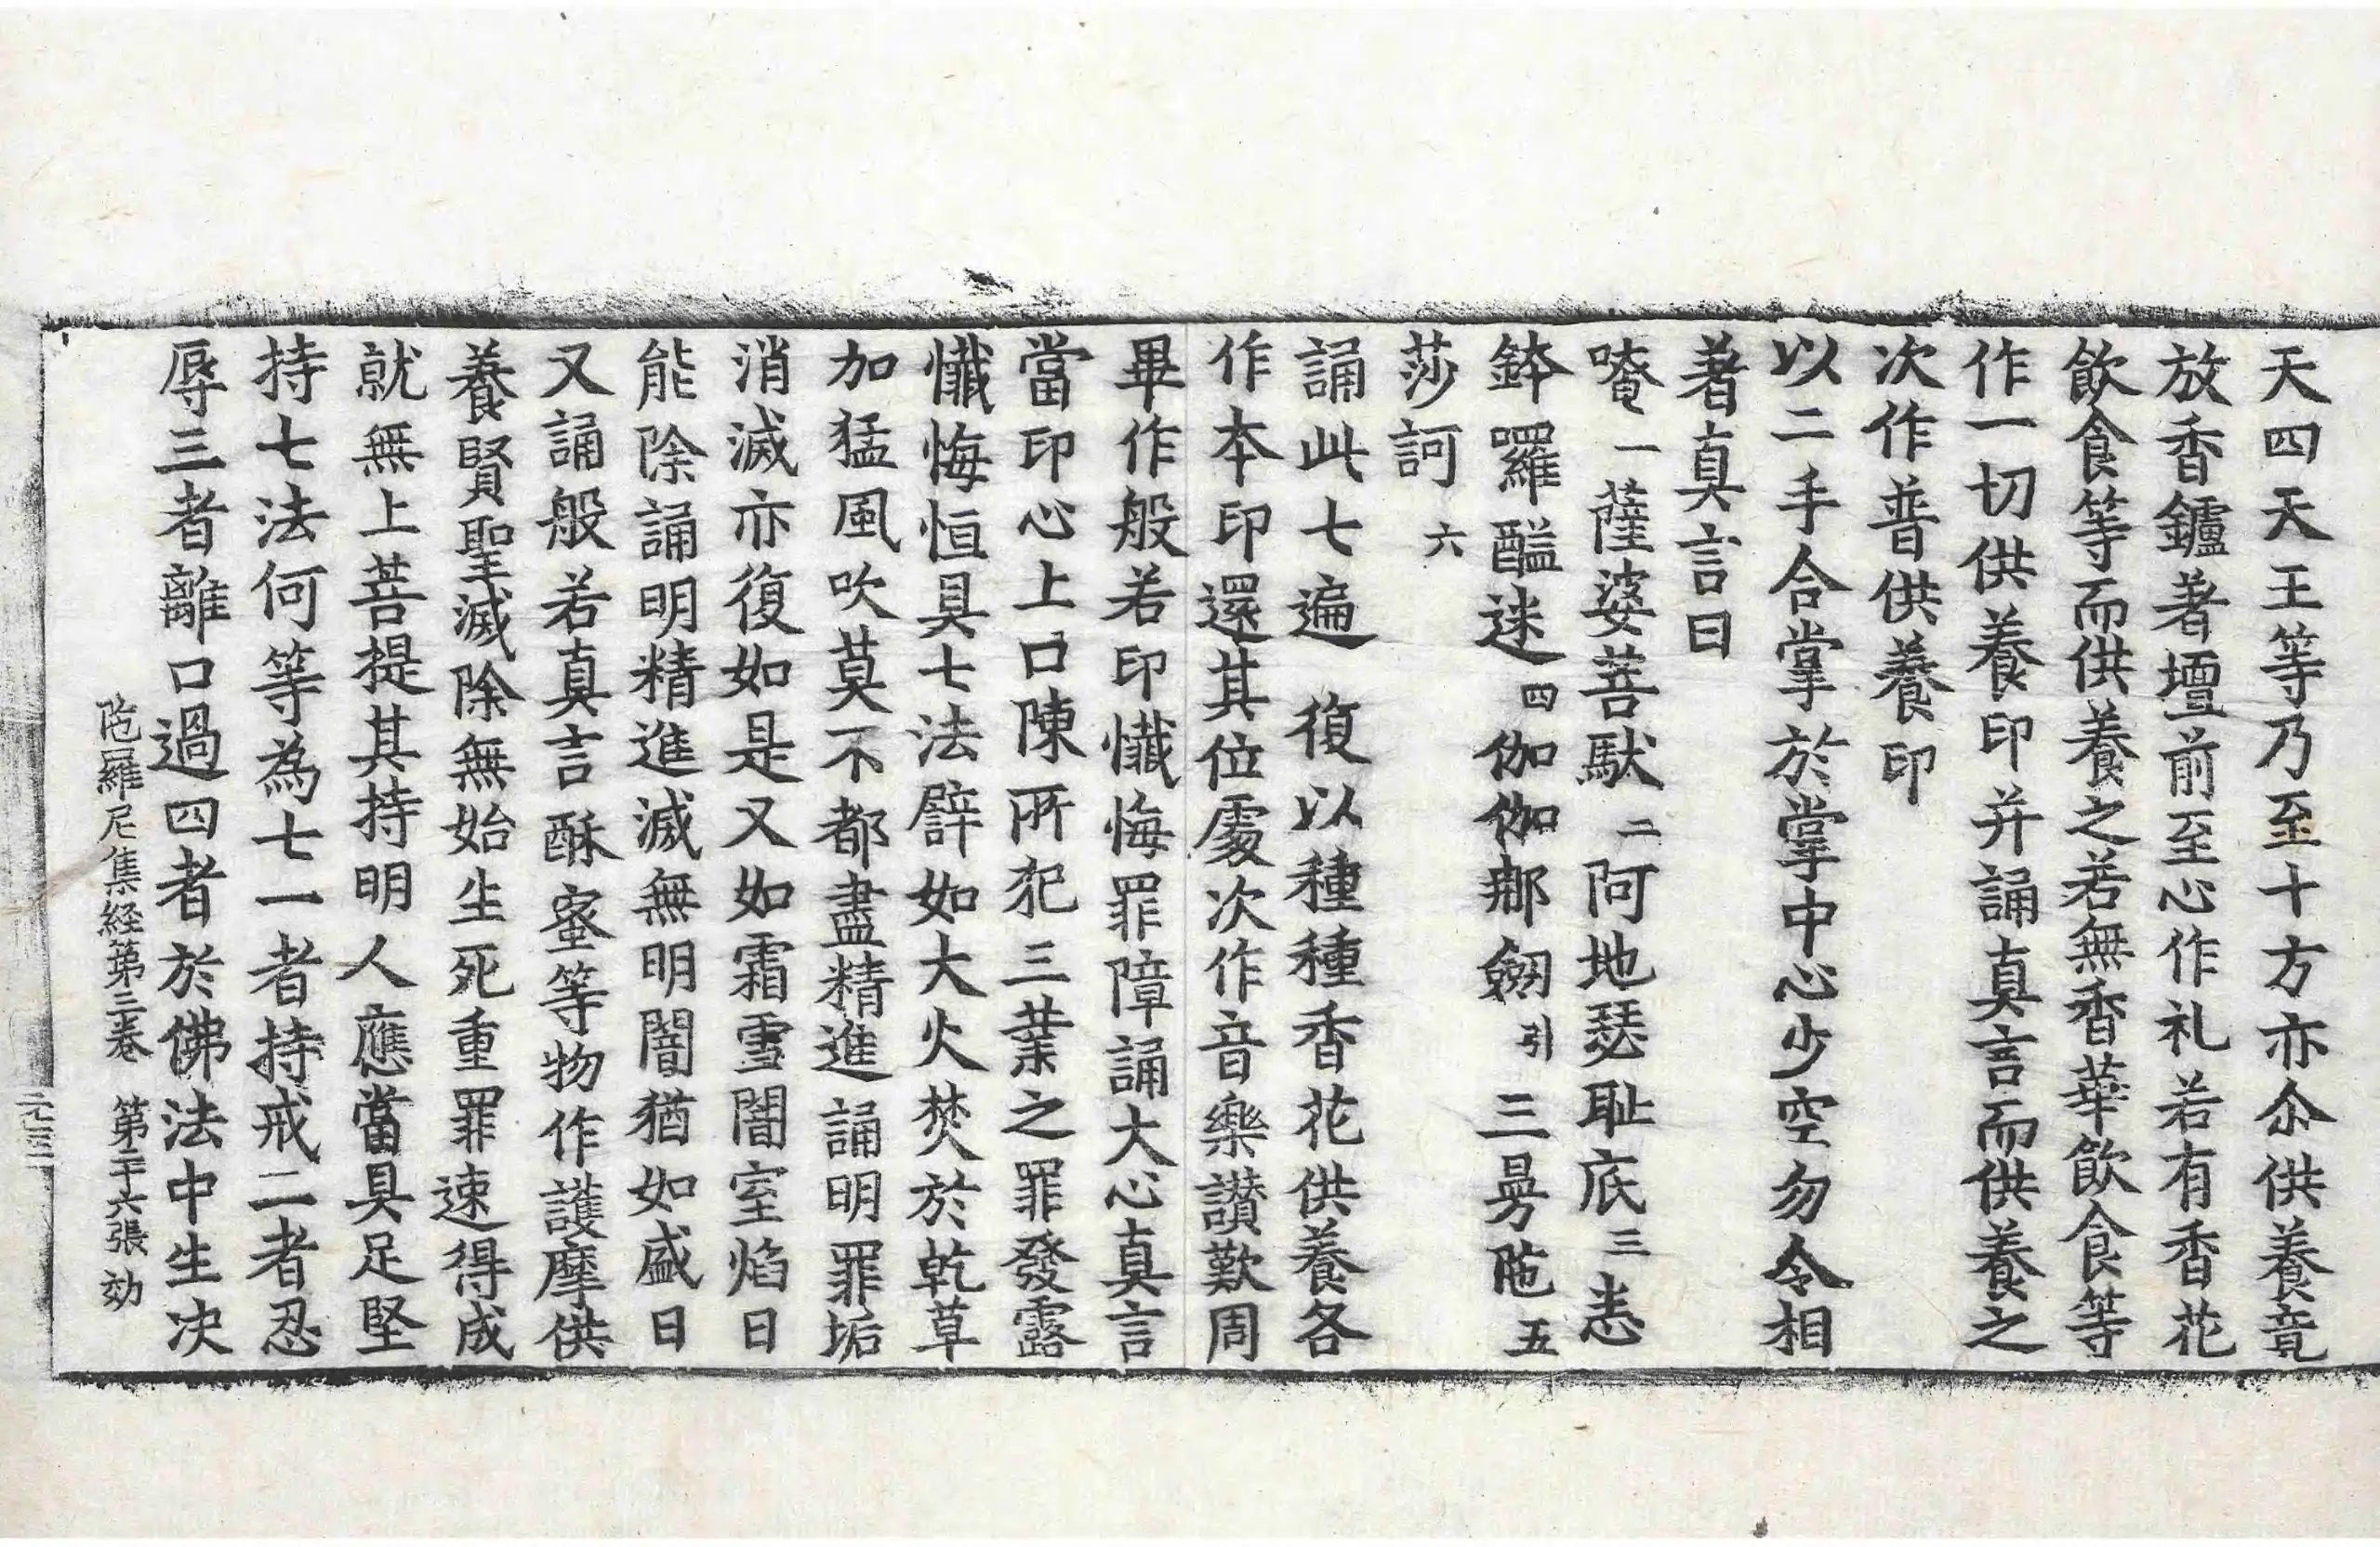 天四天王等乃至十方亦尒供養竟
放香鑪著壇前至心作礼若有香花
飲食等而供養之若無香華飲食等
作一切供養印并誦真言而供養之
次作普供養印
以二手合掌於掌中心少空勿令相
著真言曰
唵一薩婆菩馱二阿地瑟耻底三恚
鉢囉䤈迷四伽伽那劒引三曼陁五
莎訶六
誦此七遍復以種種香花供養各
作本印還其位處次作音樂讃歎周
畢作般若印懺悔罪障誦大心真言
當印心上口陳所犯三業之罪發露
懺悔恒具七法譬如大火焚於乾草
加猛風吹莫不都盡精進誦明罪垢
消滅亦復如是又如霜雪闇室焰日
能除誦明精進滅無明闇猶如盛日
又誦般若真言酥蜜等物作護摩供
養賢聖滅除無始生死重罪速得成
就無上菩提其持明人應當具足堅
持七法何等為七一者持戒二者忍
辱三者離口過四者於佛法中生决
陁羅尼集経第三卷 第二十六張 効